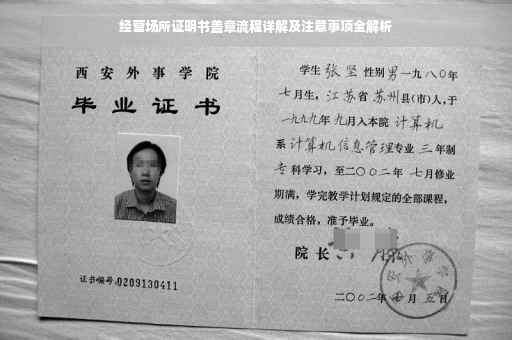 经营场所证明书盖章流程详解及注意事项全解析
西安外事学院
毕业证书
证书编号:0209130411
学生 张坚 性别 男 一九八〇年
七月生，江苏省苏州县(市)人，于
一九九九年九月入本院 计算机
系 计算机信息管理 专业 三 年制
专科学习，至二〇〇二年七月修业
期满，学完教学计划规定的全部课程，
成绩合格，准予毕业。
院长
二〇〇二年 月五日